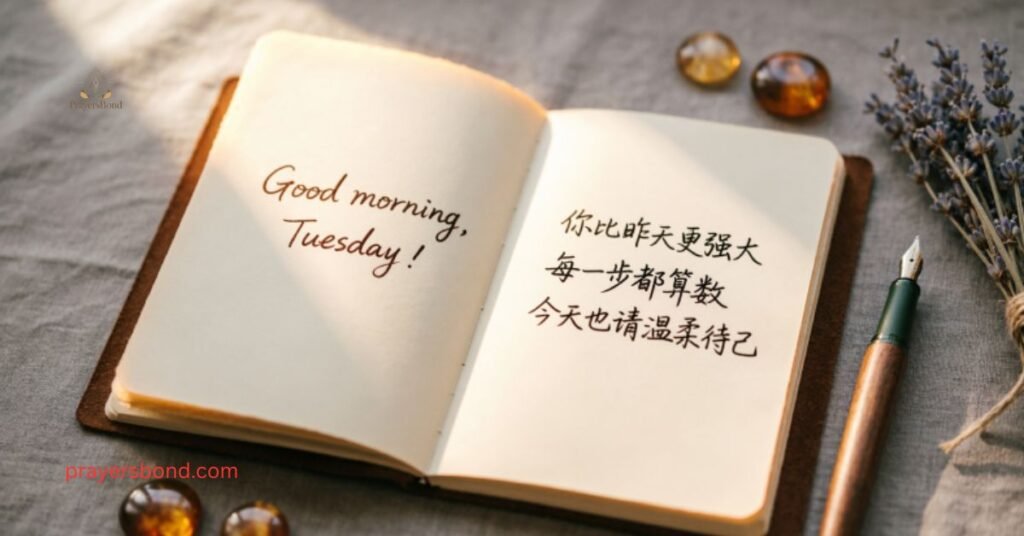 PrayersBond
Good morning,
Tuesday!
你比昨天更强大
每一步都算数
今天也请温柔待己
prayersbond.com